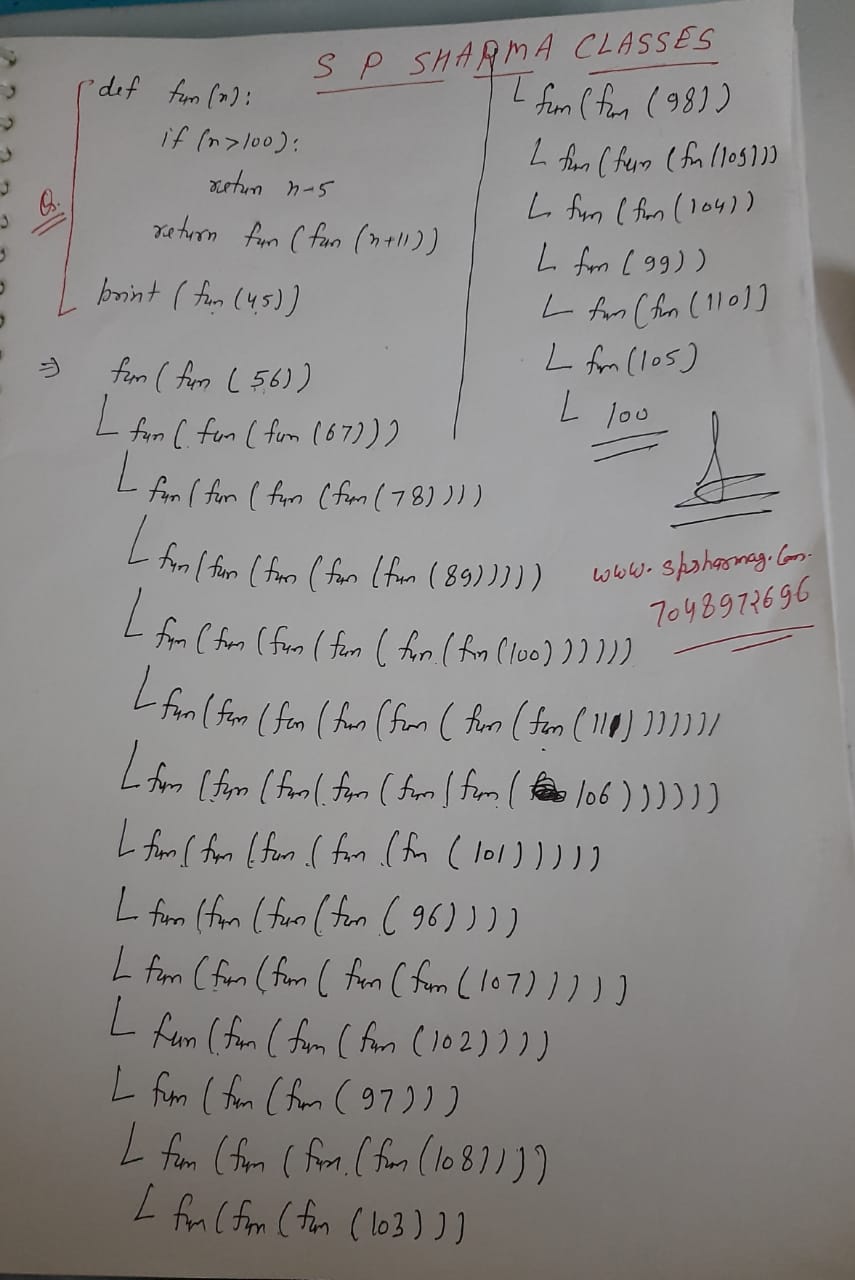 S P SHARMA CLASSES
Q.
def fun(n):
if (n>100):
return n-5
return fun(fun(n+11))
print(fun(45))
⇒ fun(fun(56))
L fun(fun(fun(67)))
L fun(fun(fun(fun(78))))
L fun(fun(fun(fun(fun(89)))))
L fun(fun(fun(fun(fun(fun(100))))))
L fun(fun(fun(fun(fun(fun(fun(111)))))))
L fun(fun(fun(fun(fun(fun(106))))))
L fun(fun(fun(fun(fn(101)))))
L fun(fun(fun(fun(96))))
L fun(fun(fun(fun(fun(107)))))
L fun(fun(fun(fun(102))))
L fun(fun(fun(97)))
L fun(fun(fun(fun(108))))
L fun(fun(fun(103)))
L fun(fun(98))
L fun(fun(fn(109)))
L fun(fun(104))
L fun(99))
L fun(fun(110))
L fun(105)
L 100
7048972696